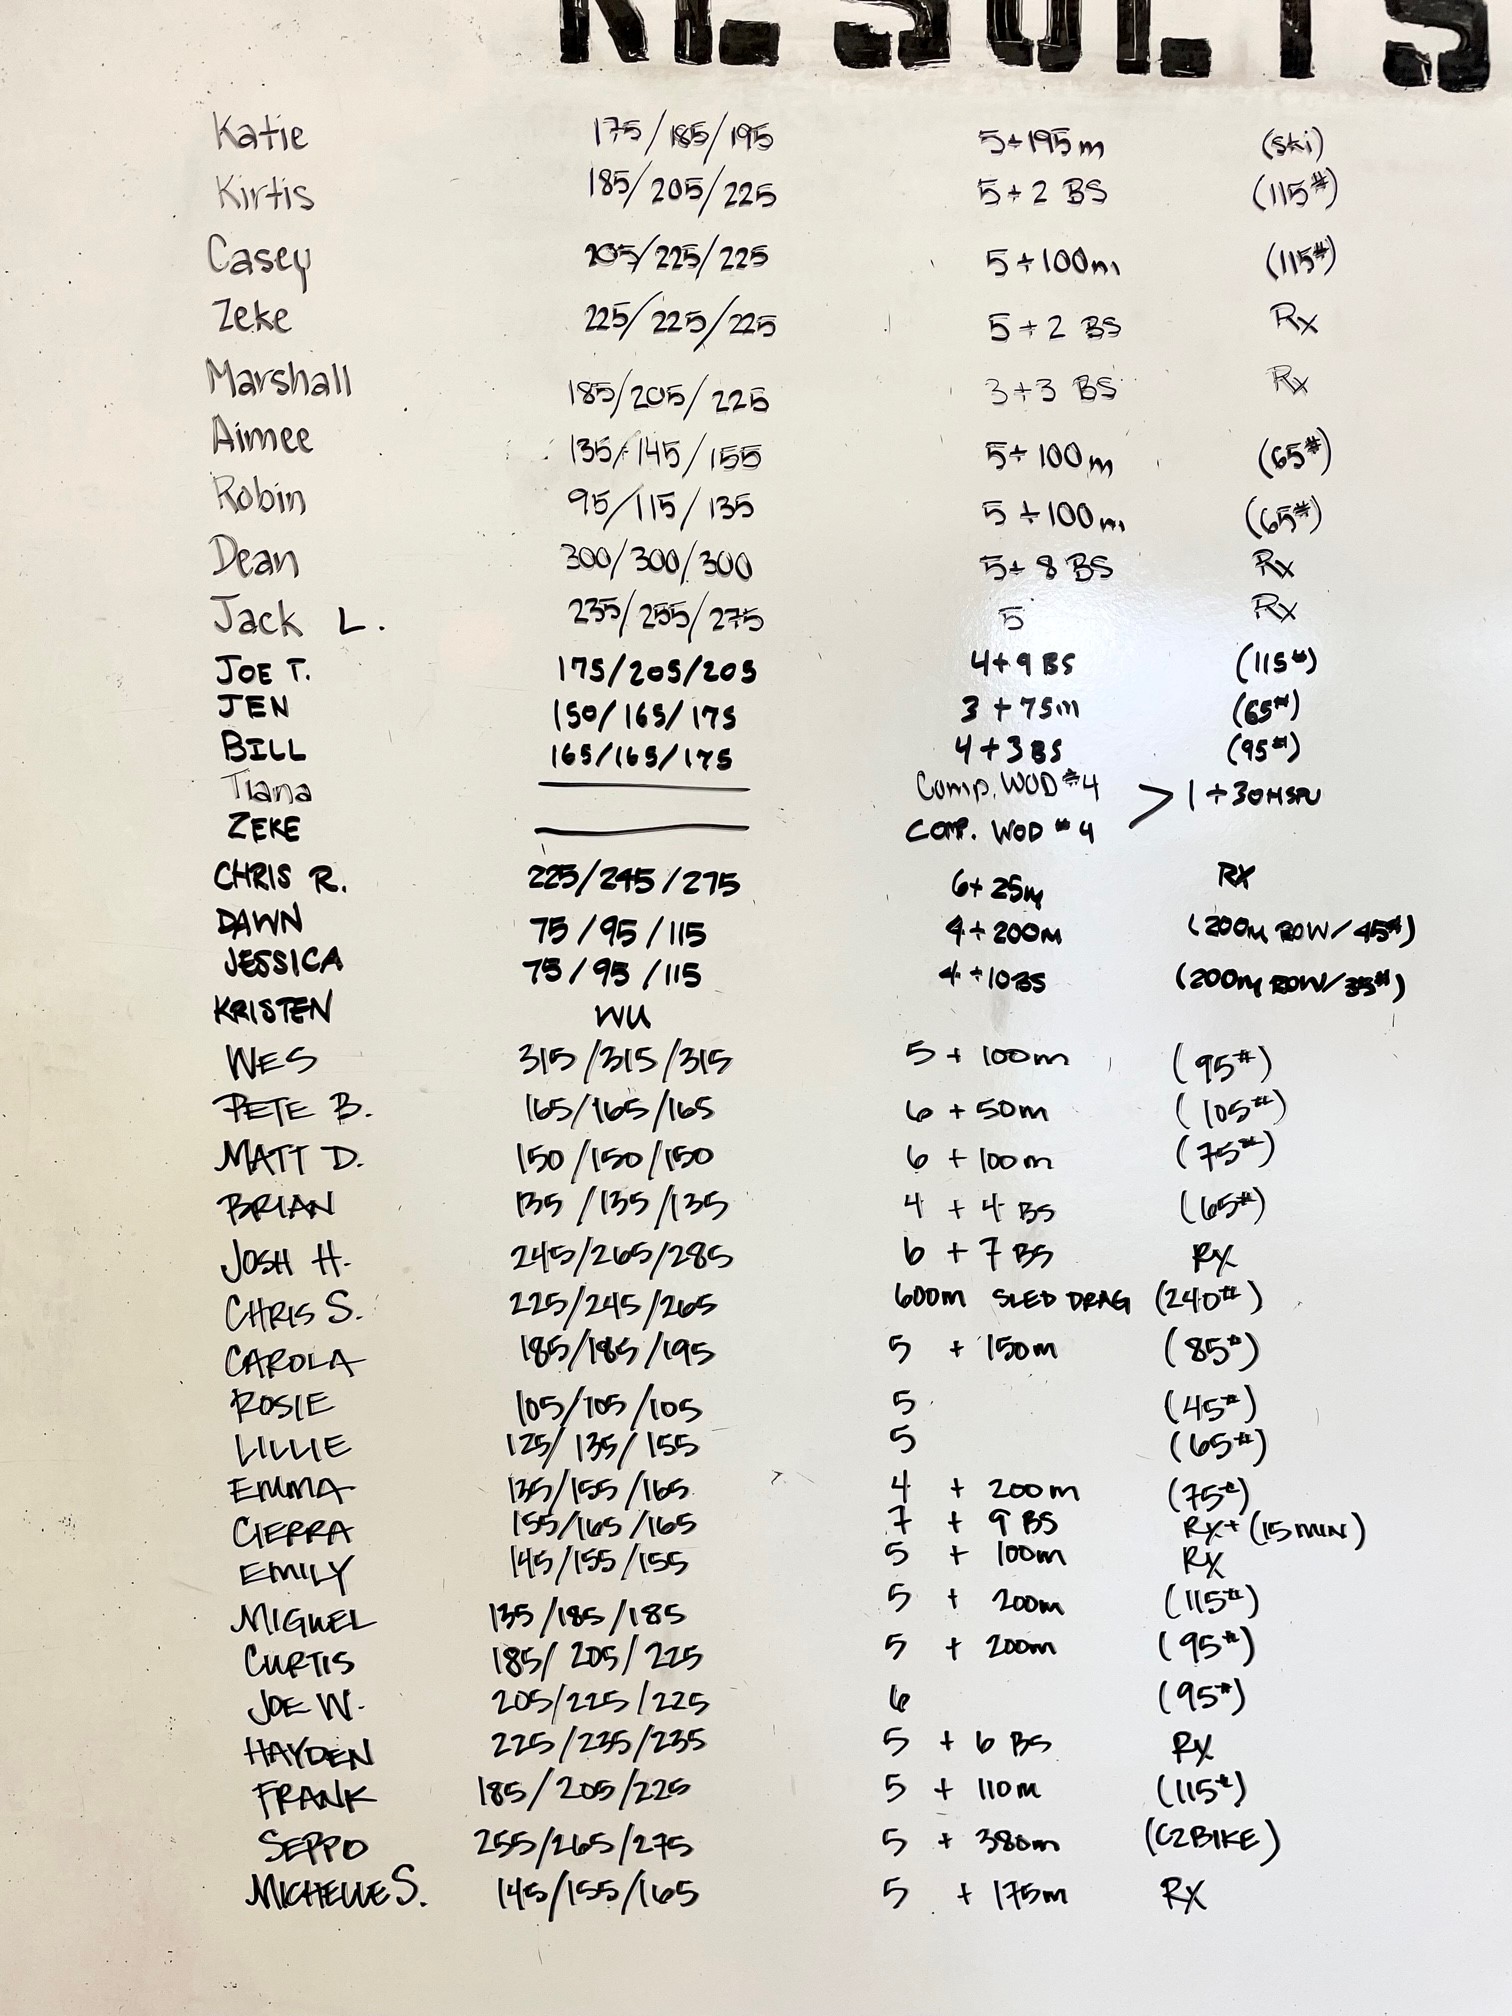 RESULTS
Katie 175/185/195 5+195m (ski)
Kirtis 185/205/225 5+2 BS (115#)
Casey 205/225/225 5+100m (115#)
Zeke 225/225/225 5+2 BS Rx
Marshall 185/205/225 3+3 BS Rx
Aimee 135/145/155 5+100m (65#)
Robin 95/115/135 5+100m (65#)
Dean 300/300/300 5+8 BS Rx
Jack L. 235/255/275 5 Rx
JOE T. 175/205/205 4+9 BS (115#)
JEN 150/165/175 3+75m (65#)
BILL 165/165/175 4+3 BS (95#)
Tiana Comp. WOD #4 > 1+30HSPU
ZEKE COMP. WOD #4
CHRIS R. 225/245/275 6+25m RX
DAWN 75/95/115 4+200m (200m ROW/45#)
JESSICA 75/95/115 4+10BS (200m ROW/35#)
KRISTEN WU
WES 315/315/315 5+100m (95#)
PETE B. 165/165/165 6+50m (105#)
MATT D. 150/150/150 6+100m (75#)
BRIAN 135/135/135 4+4 BS (65#)
JOSH H. 245/265/285 6+7 BS RX
CHRIS S. 225/245/265 600m SLED DRAG (240#)
CAROLA 185/185/195 5+150m (85#)
ROSIE 105/105/105 5 (45#)
LILLIE 125/135/155 5 (65#)
EMMA 135/155/165 4+200m (75#)
CIERRA 155/165/165 7+9 BS RX+(15MIN)
EMILY 145/155/155 5+100m RX
MIGUEL 135/185/185 5+200m (115#)
CURTIS 185/205/225 5+200m (95#)
JOE W. 205/225/225 6 (95#)
HAYDEN 225/235/235 5+6 BS RX
FRANK 185/205/225 5+110m (115#)
SEPPO 255/265/275 5+380m (C2BIKE)
MICHELLE S. 145/155/165 5+175m RX